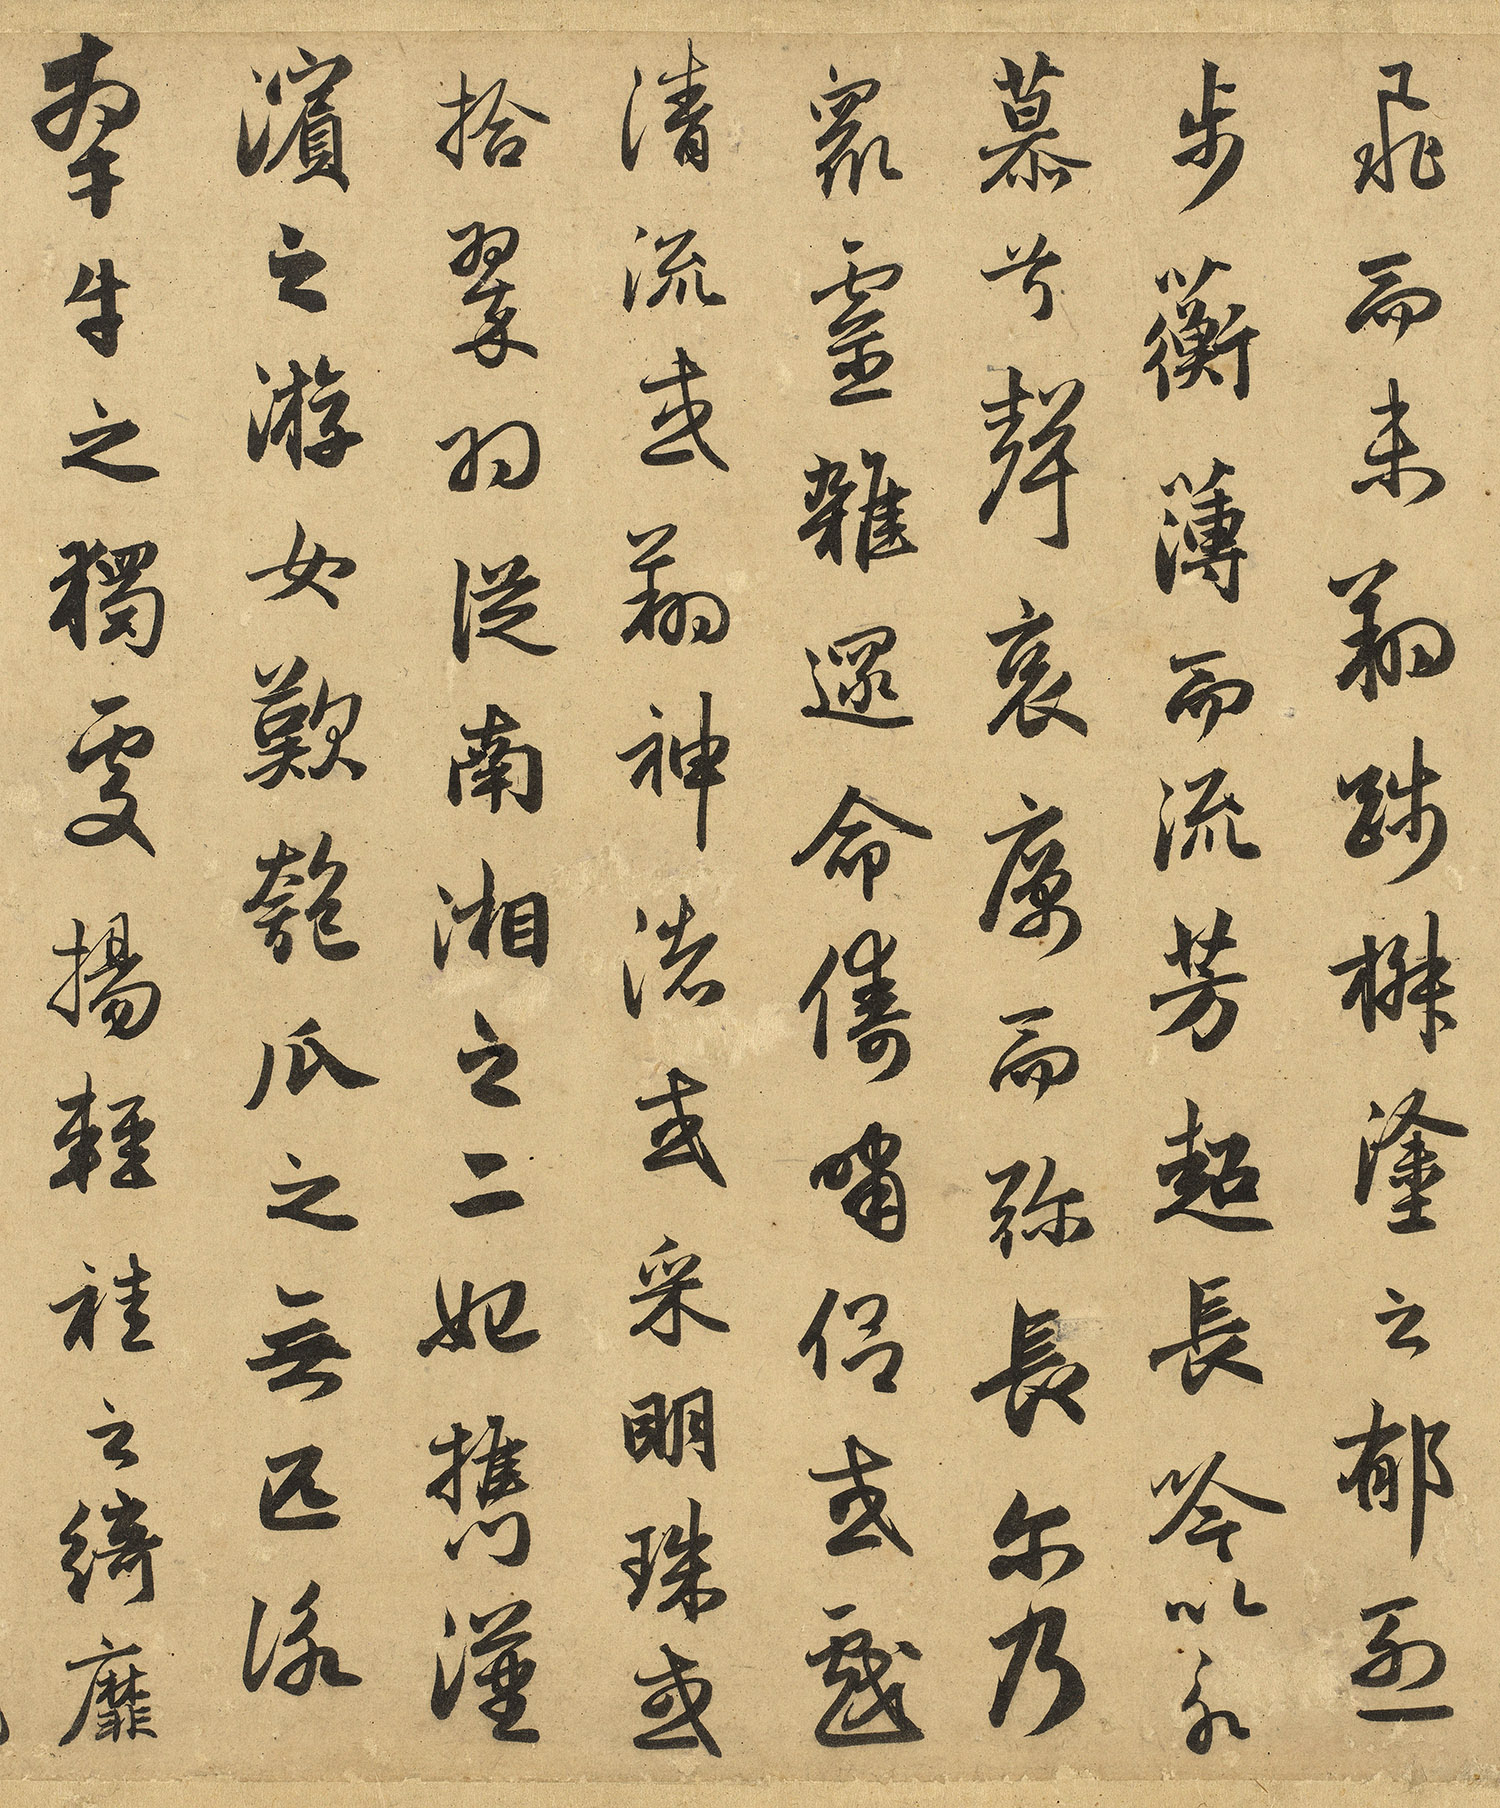 飛而未翔踐椒塗之郁烈
步蘅薄而流芳超長吟以永
慕兮聲哀厲而弥長尔乃
眾靈雜遝命儔嘯侶或戲
清流或翔神渚或采明珠或
拾翠羽從南湘之二妃攜漢
濱之游女歎匏瓜之無匹詠
牽牛之獨處揚輕袿之綺靡